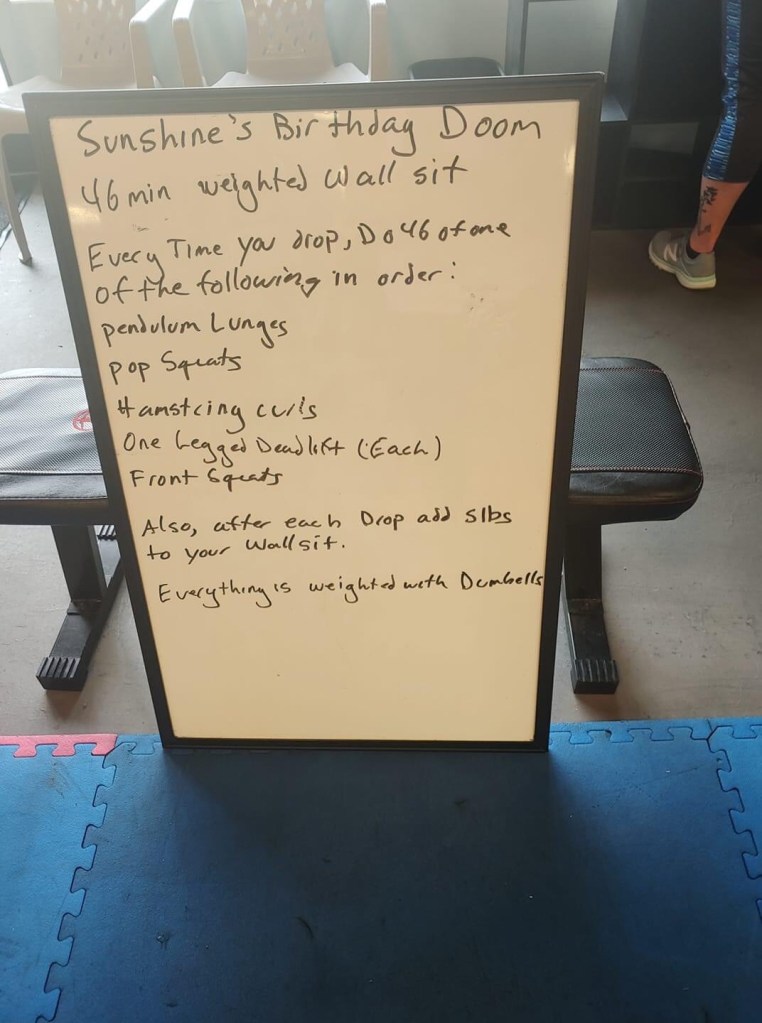 Sunshine's Birthday Doom
46 min weighted Wall sit
Every Time you drop, Do 46 of one
of the following in order:
pendulum Lunges
pop Squats
Hamstring curls
One Legged Deadlift (Each)
Front Squats
Also, after each Drop add 5lbs
to your Wallsit.
Everything is weighted with Dumbells